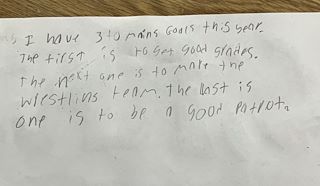 I have 3 to mains Goals this year.
The first is to get good grades.
The next one is to make the
wrestling team. The last is
one is to be a good patriot.